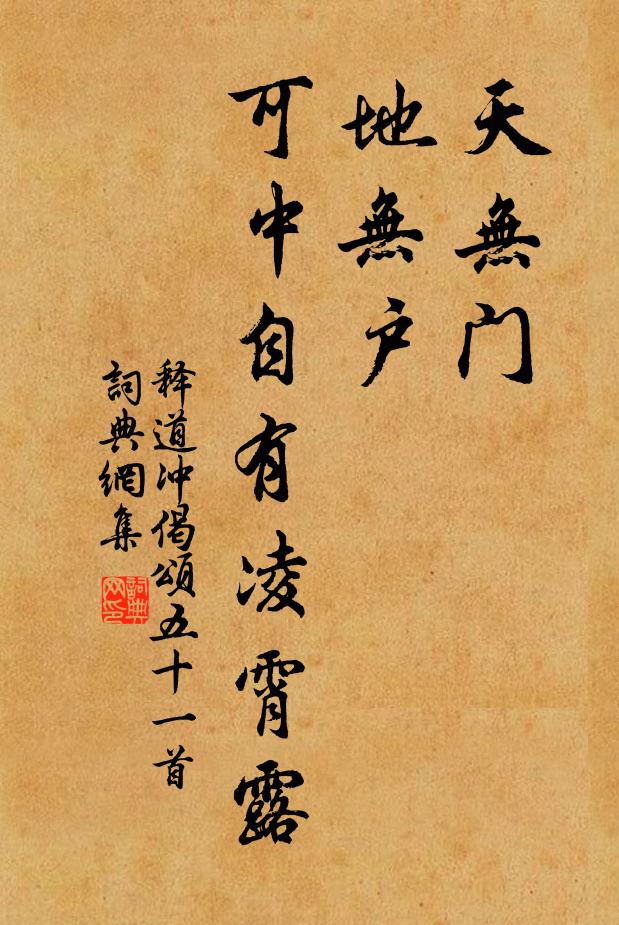 天無门
地無户
可中自有凌霄露
释道冲偈頌五十一首
詞典網集
詞典网印